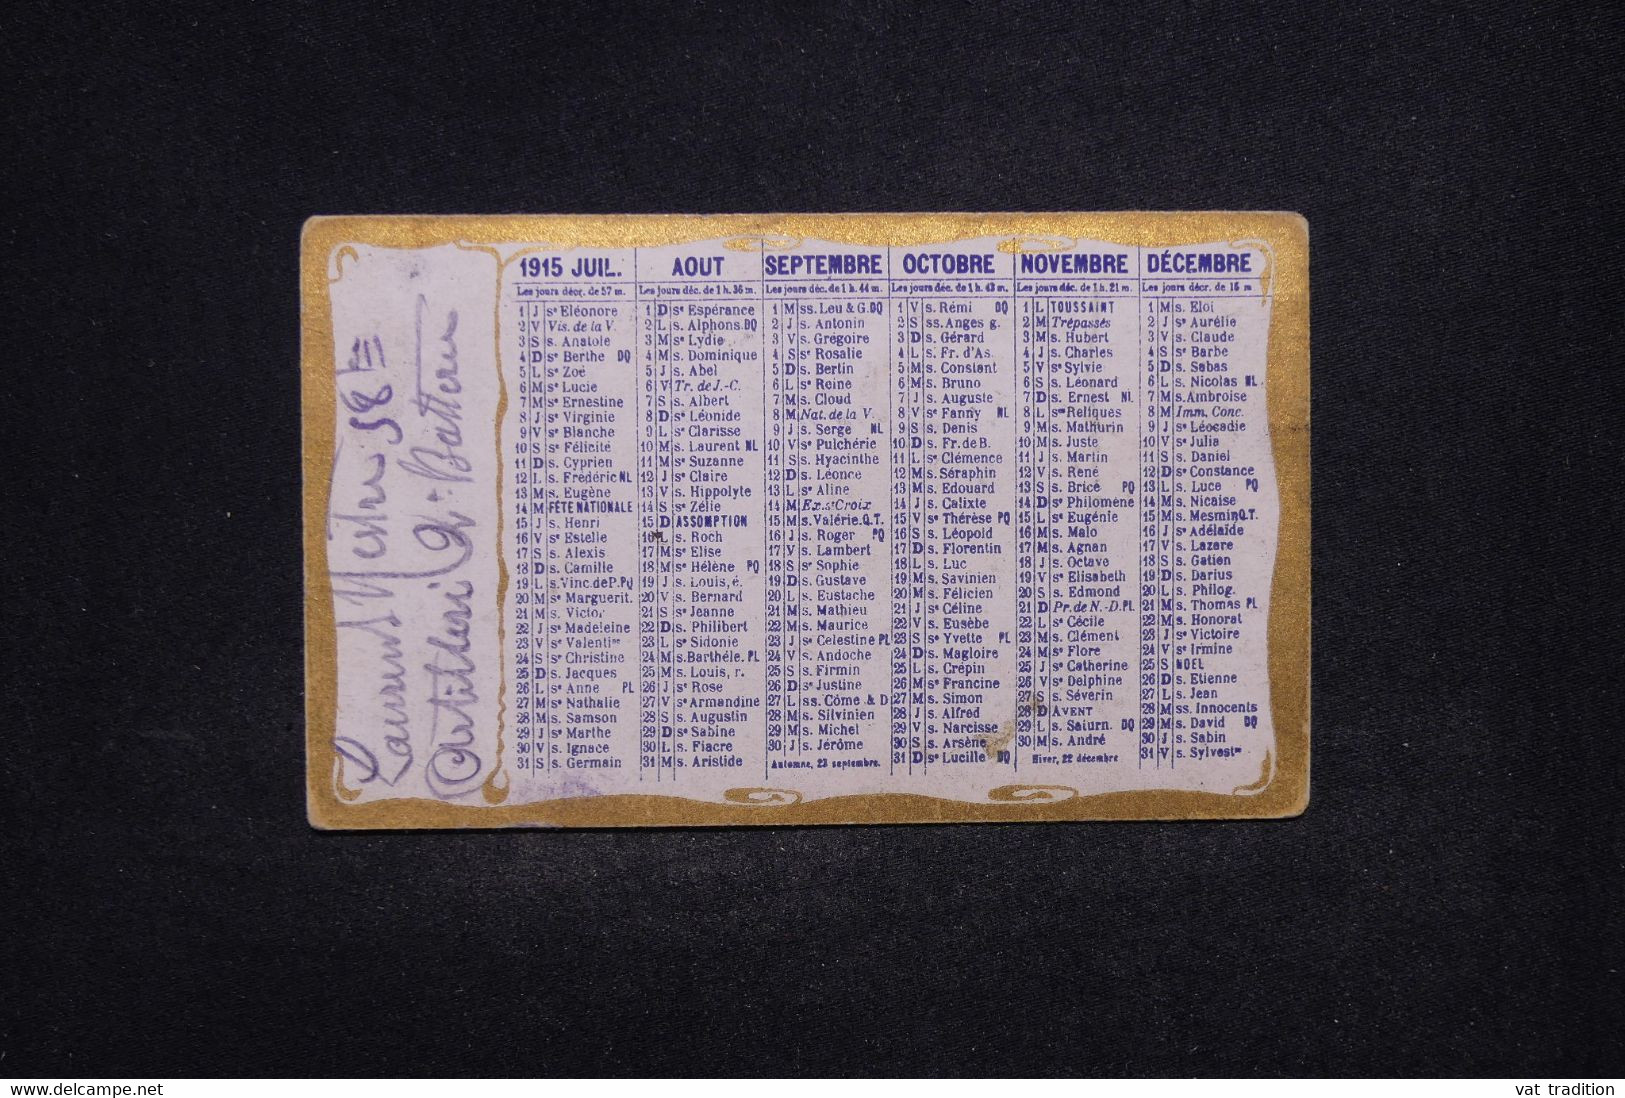 1915 JUIL.
Les jours décr. de 57 m.
1 J se Eléonore
2 V Vis. de la V.
3 S s. Anatole
4 D se Berthe DQ
5 L se Zoé
6 M se Lucie
7 M se Ernestine
8 J se Virginie
9 V se Blanche
10 S se Félicité
11 D s. Cyprien
12 L s. Frédéric NL
13 M s. Eugène
14 M FÊTE NATIONALE
15 J s. Henri
16 V se Estelle
17 S s. Alexis
18 D s. Camille
19 L s. Vinc. de P. PQ
20 M se Marguerit.
21 M s. Victor
22 J se Madeleine
23 V se Valentine
24 S se Christine
25 D s. Jacques
26 L se Anne PL
27 M se Nathalie
28 M s. Samson
29 J se Marthe
30 V s. Ignace
31 S s. Germain
AOUT
Les jours déc. de 1 h. 36 m.
1 D se Espérance
2 L s. Alphons. DQ
3 M se Lydie
4 M s. Dominique
5 J s. Abel
6 V Tr. de J.-C.
7 S s. Albert
8 D se Léonide
9 L se Clarisse
10 M s. Laurent NL
11 M se Suzanne
12 J se Claire
13 V s. Hippolyte
14 S s. Zélie
15 D ASSOMPTION
16 L s. Roch
17 M s. Elise
18 M se Hélène PQ
19 J s. Louis, é.
20 V s. Bernard
21 S se Jeanne
22 D s. Philibert
23 L se Sidonie
24 M s. Barthéle. PL
25 M s. Louis, r.
26 J se Rose
27 V se Armandine
28 S s. Augustin
29 D se Sabine
30 L s. Fiacre
31 M s. Aristide
SEPTEMBRE
Les jours déc. de 1 h. 44 m.
1 M ss. Leu & G. DQ
2 J s. Antonin
3 V s. Grégoire
4 S se Rosalie
5 D s. Bertin
6 L se Reine
7 M s. Cloud
8 M Nat. de la V.
9 J s. Serge NL
10 V se Pulchérie
11 S s. Hyacinthe
12 D s. Léonce
13 L se Aline
14 M Ex. se Croix
15 M s. Valérie. Q.T.
16 J s. Roger PQ
17 V s. Lambert
18 S se Sophie
19 D s. Gustave
20 L s. Eustache
21 M s. Mathieu
22 M s. Maurice
23 J se Celestine PL
24 V s. Andoche
25 S s. Firmin
26 D se Justine
27 L ss. Côme & D
28 M s. Silvinien
29 M s. Michel
30 J s. Jérôme
Automne, 23 septembre.
OCTOBRE
Les jours déc. de 1 h. 43 m.
1 V s. Rémi DQ
2 S ss. Anges g.
3 D s. Gérard
4 L s. Fr. d'As.
5 M s. Constant
6 M s. Bruno
7 J s. Auguste
8 V se Fanny NL
9 S s. Denis
10 D s. Fr. de B.
11 L se Clémence
12 M s. Séraphin
13 M s. Edouard
14 J s. Calixte
15 V se Thérèse PQ
16 S s. Léopold
17 D s. Florentin
18 L s. Luc
19 M s. Savinien
20 M s. Félicien
21 J se Céline
22 V s. Eusèbe
23 S se Yvette PL
24 D s. Magloire
25 L s. Crépin
26 M se Francine
27 M s. Simon
28 J s. Alfred
29 V s. Narcisse
30 S s. Arsène
31 D se Lucille DQ
NOVEMBRE
Les jours déc. de 1 h. 21 m.
1 L TOUSSAINT
2 M Trépassés
3 M s. Hubert
4 J s. Charles
5 V se Sylvie
6 S s. Léonard
7 D s. Ernest NL
8 L ses Reliques
9 M s. Mathurin
10 M s. Juste
11 J s. Martin
12 V s. René
13 S s. Brice PQ
14 D se Philomène
15 L se Eugénie
16 M s. Malo
17 M s. Agnan
18 J s. Octave
19 V se Elisabeth
20 S s. Edmond
21 D Pr. de N.-D. PL
22 L se Cécile
23 M s. Clément
24 M se Flore
25 J se Catherine
26 V se Delphine
27 S s. Séverin
28 D AVENT
29 L s. Saturn. DQ
30 M s. André
Hiver, 22 décembre
DÉCEMBRE
Les jours décr. de 15 m
1 M s. Eloi
2 J se Aurélie
3 V s. Claude
4 S se Barbe
5 D s. Sabas
6 L s. Nicolas NL
7 M s. Ambroise
8 M Imm. Conc.
9 J se Léocadie
10 V se Julia
11 S s. Daniel
12 D se Constance
13 L s. Luce PQ
14 M s. Nicaise
15 M s. Mesmin Q.T.
16 J se Adélaïde
17 V s. Lazare
18 S s. Gatien
19 D s. Darius
20 L s. Philog.
21 M s. Thomas PL
22 M s. Honorat
23 J se Victoire
24 V se Irmine
25 S NOEL
26 D s. Etienne
27 L s. Jean
28 M ss. Innocents
29 M s. David DQ
30 J s. Sabin
31 V s. Sylvestre
delcampe.net
vat tradition